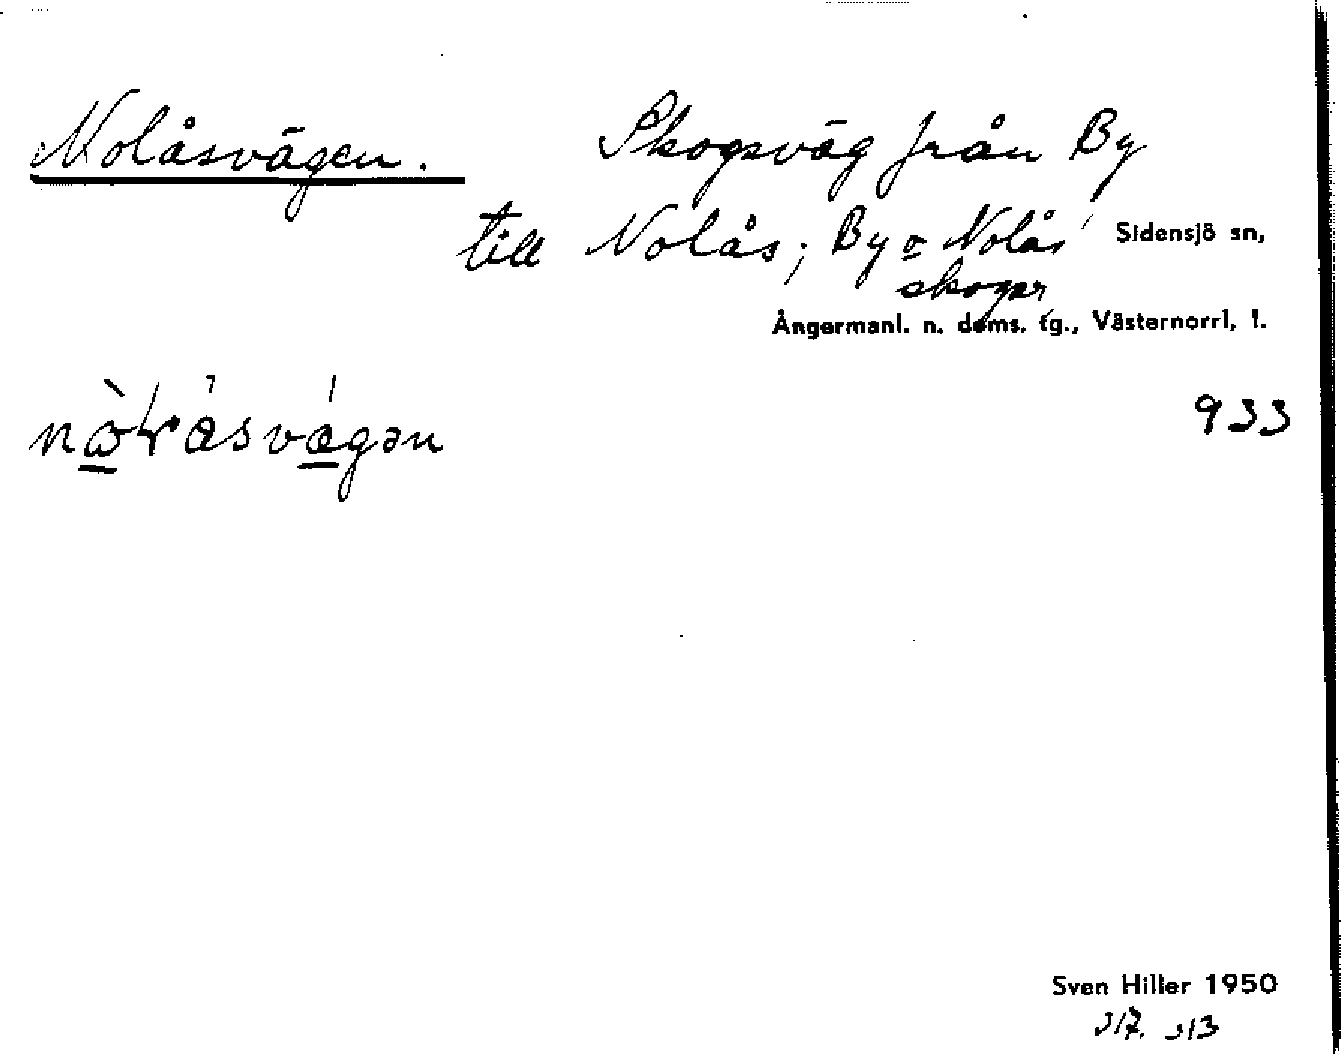 Nolåsvägen. Skogsväg från By
till Nolås; By o Nolås
skogar
Sidensjö sn,
Ångermanl. n. doms. fg., Västernorrl, l.
933
Sven Hiller 1950